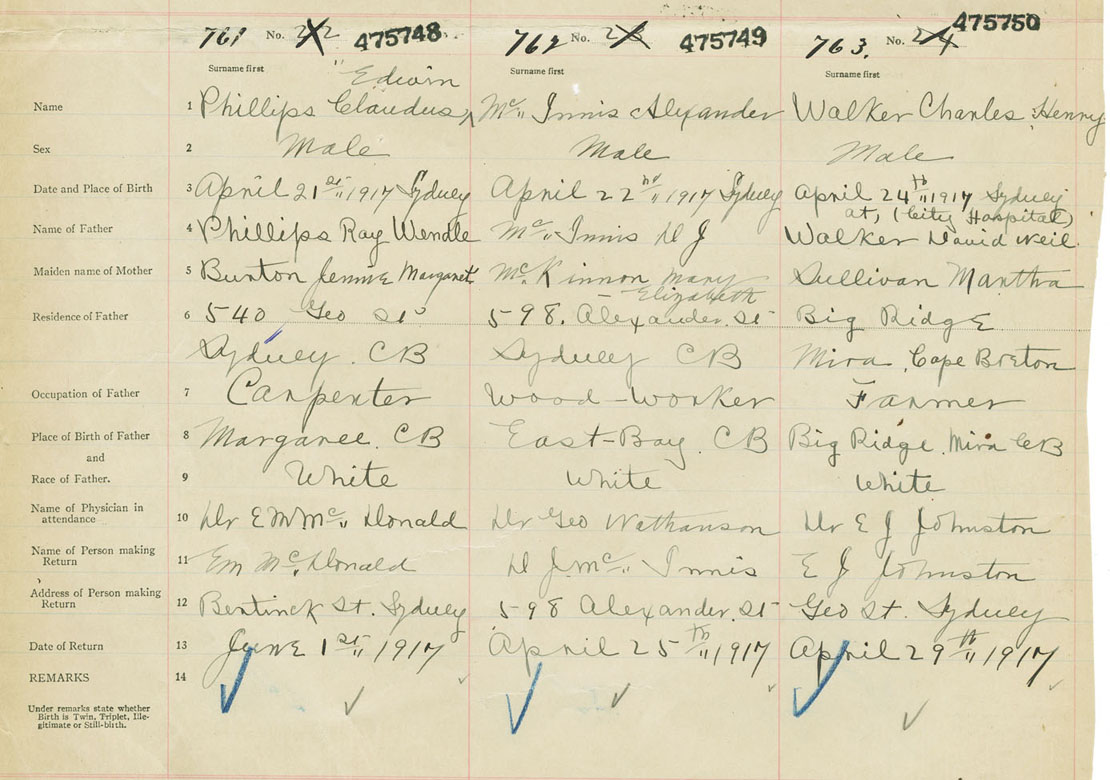 761 No. 475748 762 No. 475749 763. No. 475750
Surname first Surname first Surname first
"Edwin
Name 1 Phillips Claudus, Mc" Innis Alexander Walker Charles Henry
Sex 2 Male Male Male
Date and Place of Birth 3 April 21st" 1917 Sydney April 22nd" 1917 Sydney April 24th" 1917 Sydney
at, (City Hospital)
Name of Father 4 Phillips Ray Wendle Mc" Innis D J Walker David Neil.
Maiden name of Mother 5 Burton Jennie Margaret McKinnon Mary Sullivan Martha
Elizabeth
Residence of Father 6 540 Geo St 598. Alexander. St Big Ridge
Sydney. CB Sydney CB Mira, Cape Breton
Occupation of Father 7 Carpenter Wood-worker Farmer
Place of Birth of Father 8 Margaree. CB East-Bay. CB Big Ridge. Mira CB
and
Race of Father. 9 White White White
Name of Physician in
attendance 10 Dr E M Mc" Donald Dr Geo Nathanson Dr E J Johnston
Name of Person making
Return 11 Em Mc. Donald D J. Mc" Innis E J Johnston
Address of Person making
Return 12 Bentinck St. Sydney 598 Alexander. St Geo St. Sydney
Date of Return 13 June 1st" 1917 April 25th" 1917 April 29th" 1917
REMARKS 14
Under remarks state whether
Birth is Twin, Triplet, Ille-
gitimate or Still-birth.